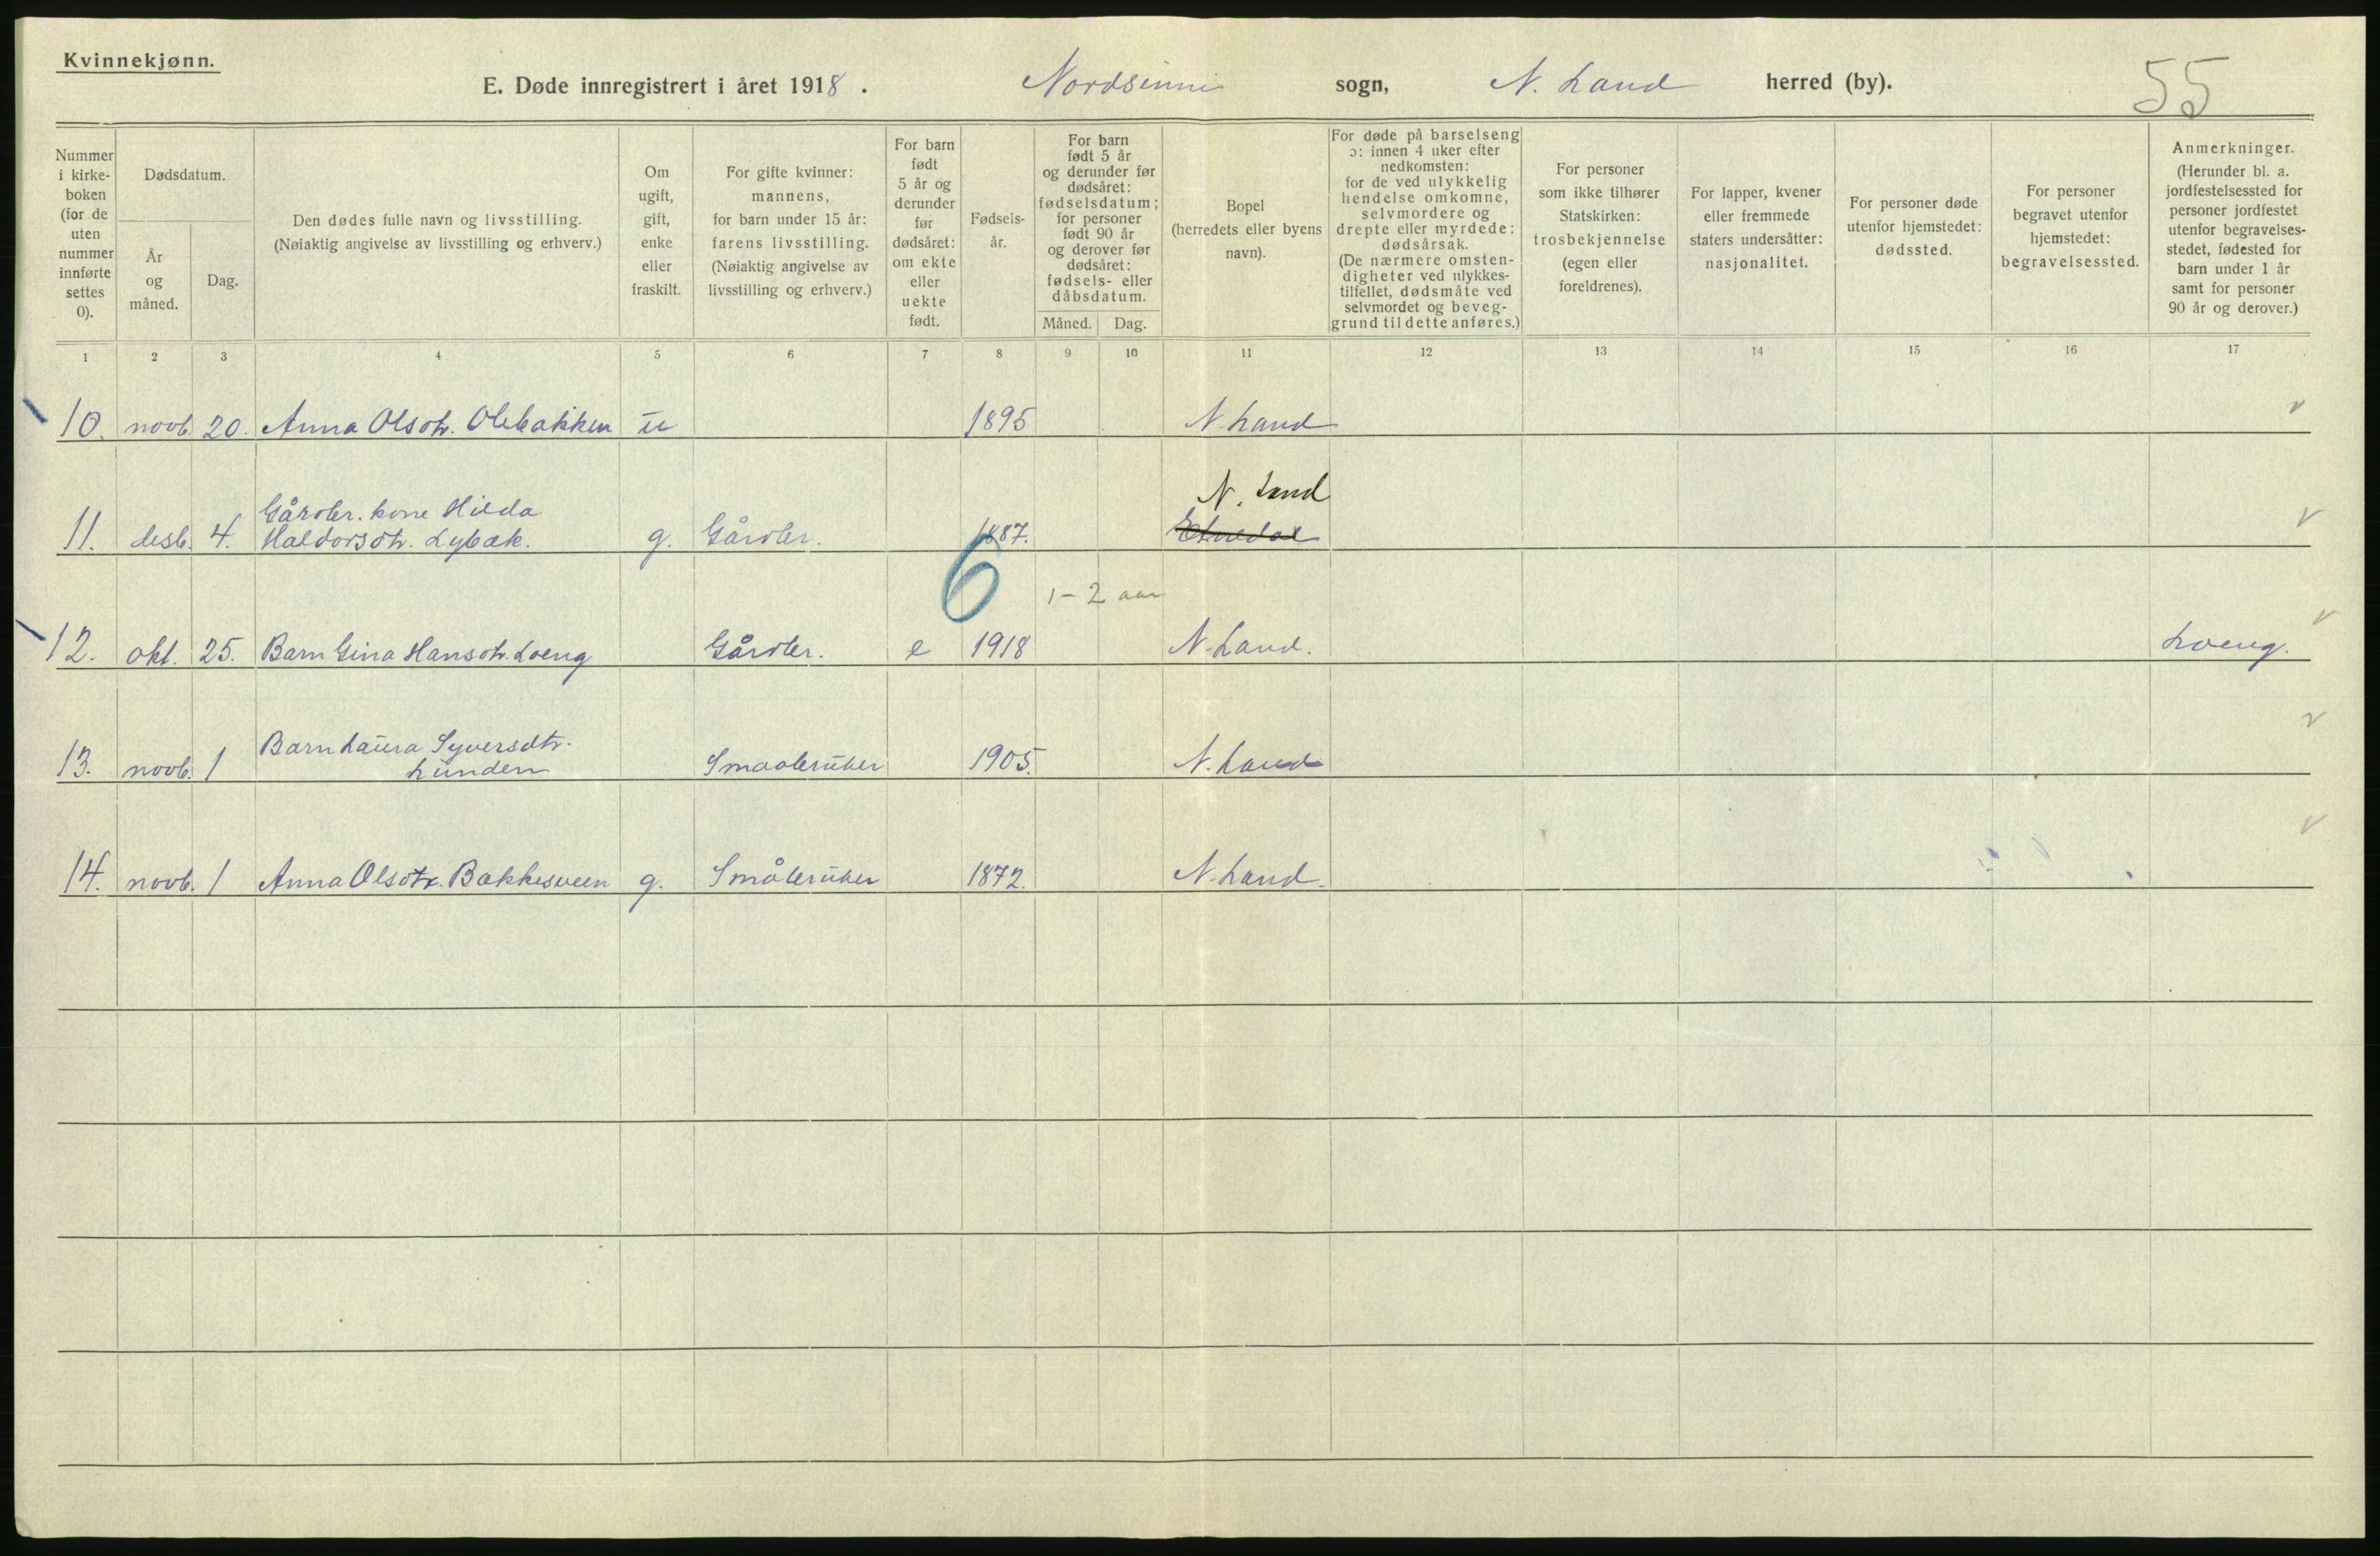 Kvinnekjønn.
E. Døde innregistrert i året 1918. Nordsinni sogn, N. Land herred (by). 55
Nummer i kirke-boken (for de uten nummer innførte settes 0).
Dødsdatum.
År og måned.
Dag.
Den dødes fulle navn og livsstilling. (Nøiaktig angivelse av livsstilling og erhverv.)
Om ugift, gift, enke eller fraskilt.
For gifte kvinner: mannens, for barn under 15 år: farens livsstilling. (Nøiaktig angivelse av livsstilling og erhverv.)
For barn født 5 år og derunder før dødsåret: om ekte eller uekte født.
Fødsels-år.
For barn født 5 år og derunder før dødsåret: fødselsdatum; for personer født 90 år og derover før dødsåret: fødsels- eller dåbsdatum.
Måned. Dag.
Bopel (herredets eller byens navn).
For døde på barselseng ɔ: innen 4 uker efter nedkomsten: for de ved ulykkelig hendelse omkomne, selvmordere og drepte eller myrdede: dødsårsak. (De nærmere omsten-digheter ved ulykkes-tilfellet, dødsmåte ved selvmordet og beveg-grund til dette anføres.)
For personer som ikke tilhører Statskirken: trosbekjennelse (egen eller foreldrenes).
For lapper, kvener eller fremmede staters undersåtter: nasjonalitet.
For personer døde utenfor hjemstedet: dødssted.
For personer begravet utenfor hjemstedet: begravelsessted.
Anmerkninger. (Herunder bl. a. jordfestelsessted for personer jordfestet utenfor begravelses-stedet, fødested for barn under 1 år samt for personer 90 år og derover.)
1 2 3 4 5 6 7 8 9 10 11 12 13 14 15 16 17
10. novb. 20. Anna Olsdtr. Olebakken u 1895 N. Land
Gårdbr. kone Hilda N. Land
11. desb. 4. Haldorsdtr. Lybæk. g. Gårdbr. 1887. Etnedal
6 1-2 aar
12. okt. 25. Barn Gina Hansdtr. Loeng Gårdbr. e 1918 N. Land. Loeng.
Barn Laura Syversdtr.
13. novb. 1 Lunden Smaabruker 1905. N. Land
14. novb. 1 Anna Olsdtr. Bakkesveen g. Småbruker 1872. N. Land.